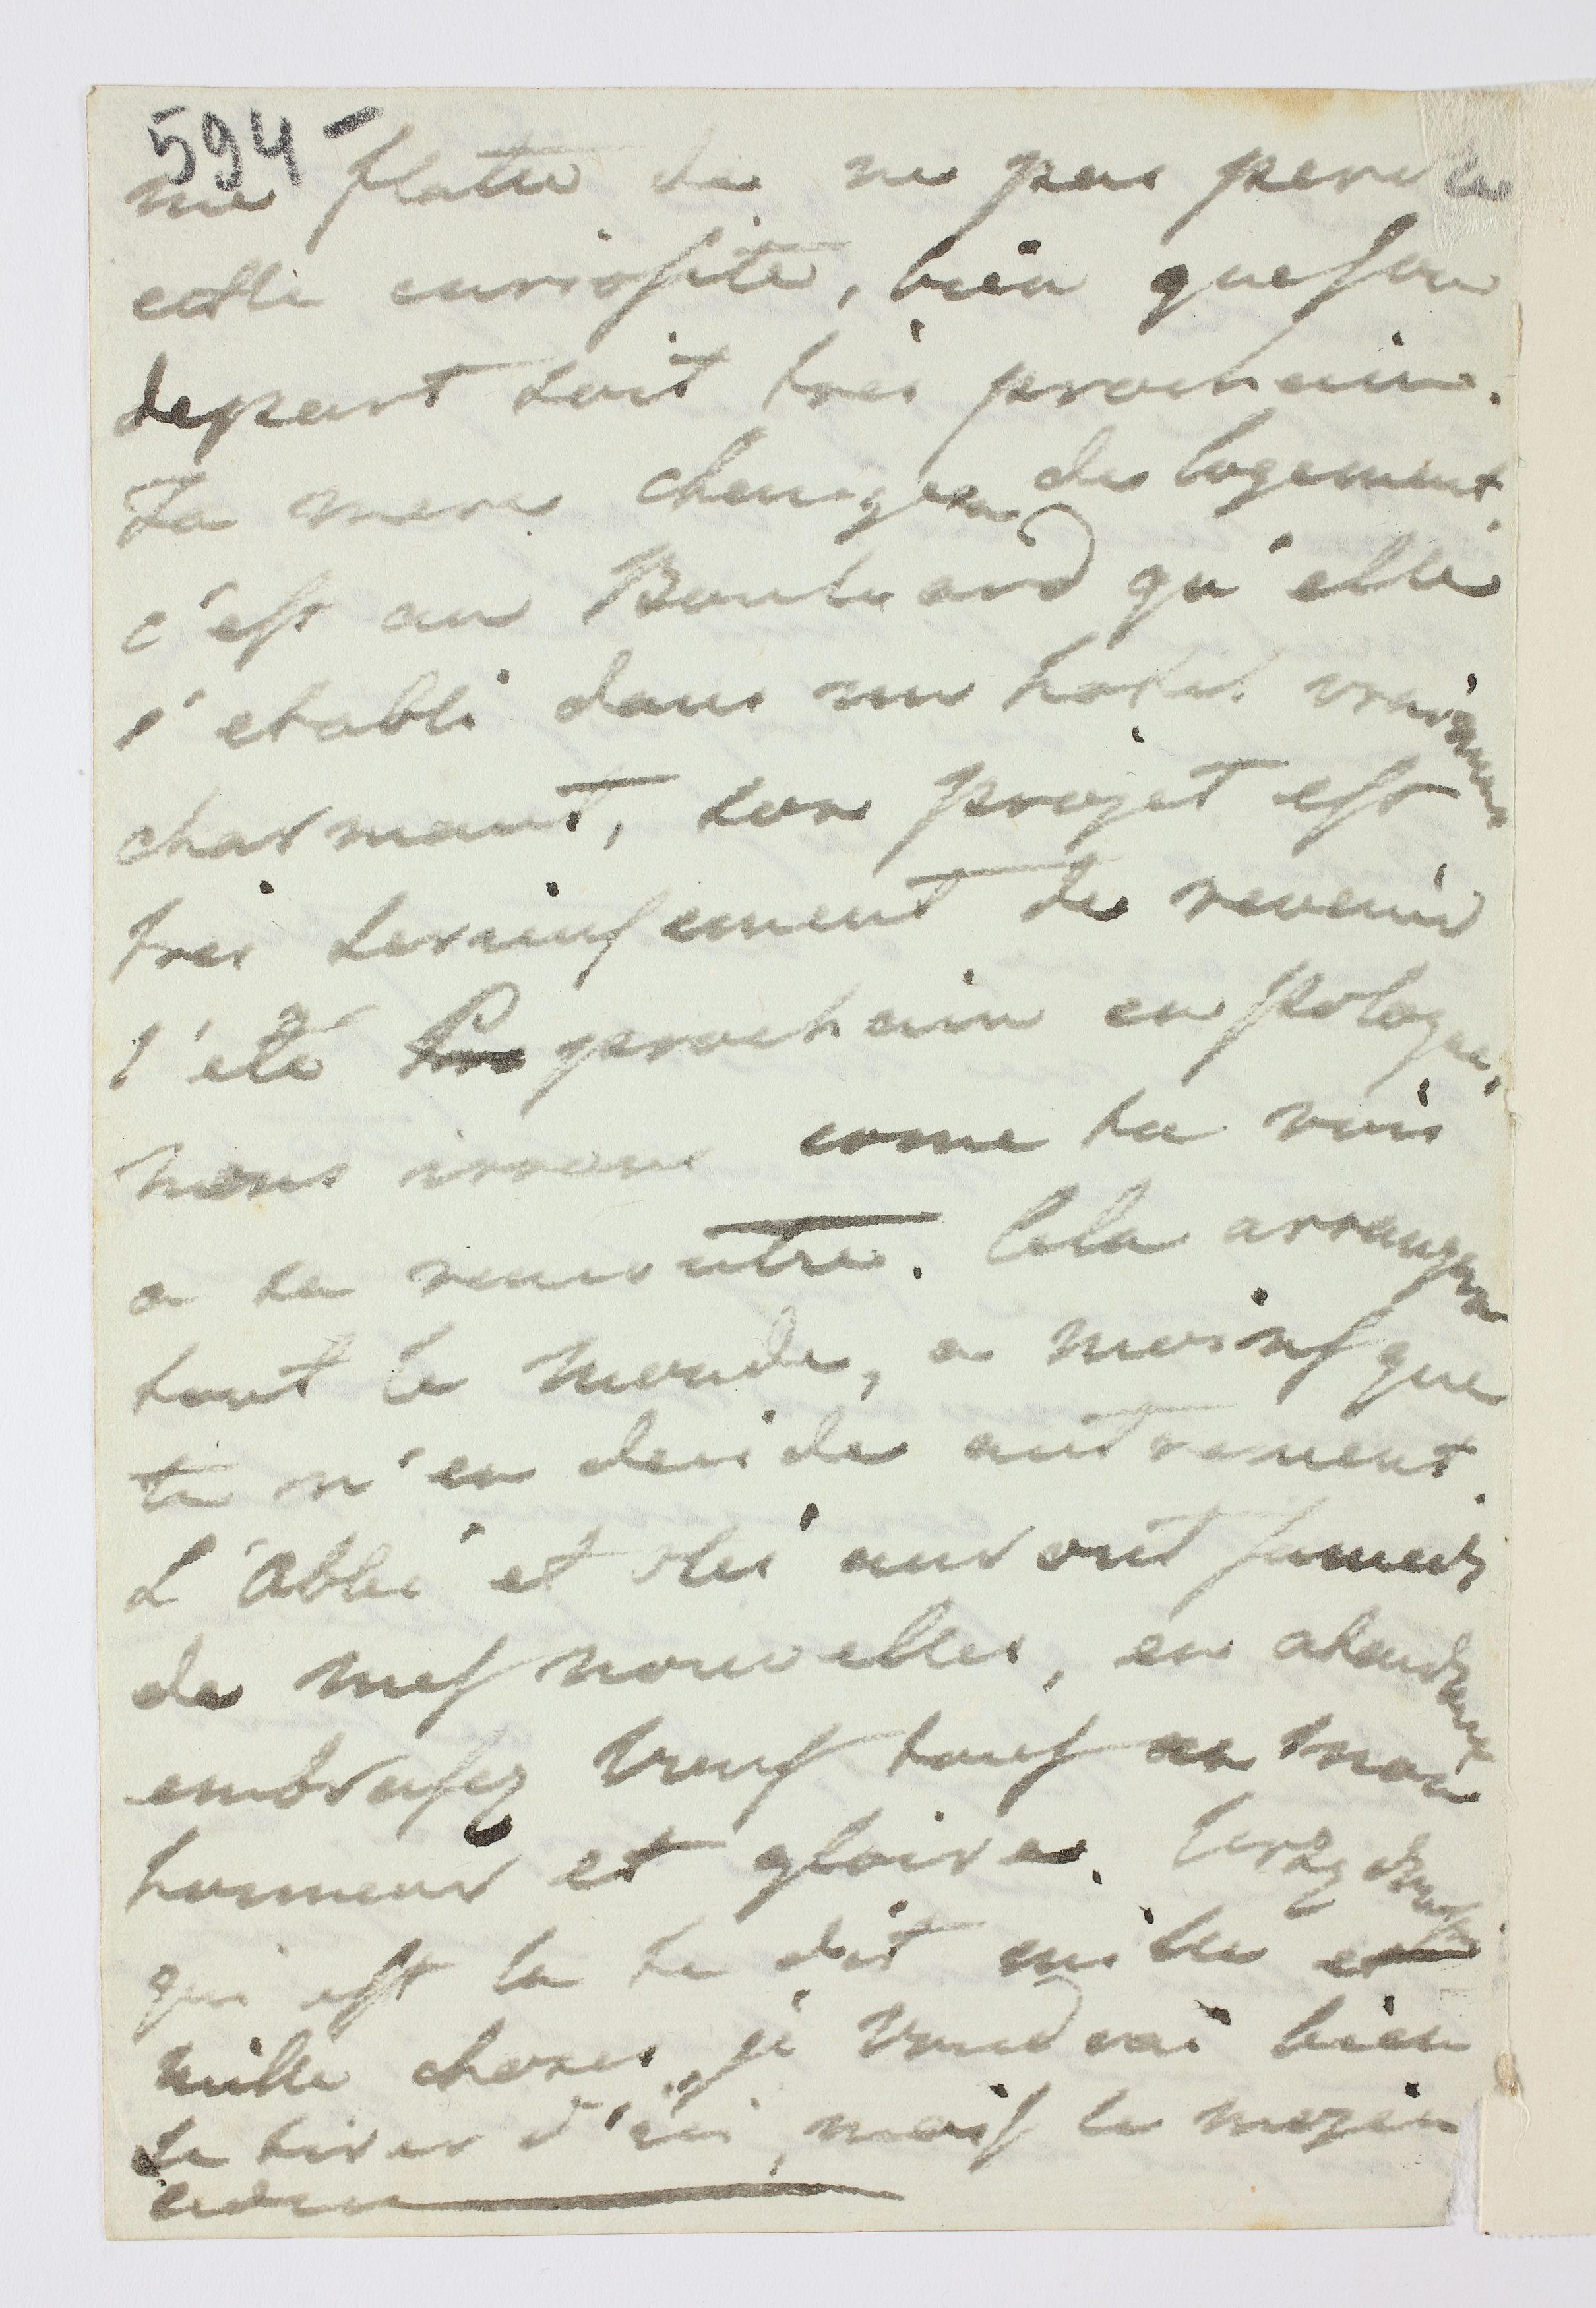 594 -
me flatte de ne pas perdre
cette curiosité, bien que son
depart soit tres prochain.
Ta mere changea de logement,
c'est au Boulevard qu'elle
s'etabli dans un hotel vraiment
charmant, son projet est
tres serieusement de revenir
l'eté prochain en pologne,
nous irrons come tu vois
a sa rencontre. Cela arrangea
tout le monde, a moins que
tu n'en decide autrement.
L'Abbé et auront jamais
de mes nouvelles, en atendant
embrassez Vous tous a mon
honneur et gloire.
qui est la te dit mille et
mille choses, je voudrai bien
se tirer d'ici, mais le moyen
adieu